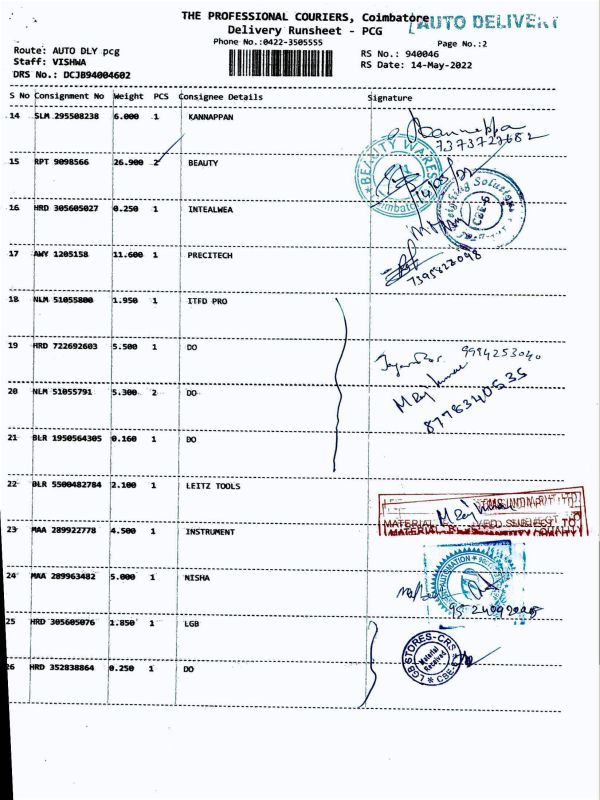 THE PROFESSIONAL COURIERS, Coimbatore
AUTO DELIVERY
Delivery Runsheet - PCG
Phone No.:0422-3505555
Page No.:2
Route: AUTO DLY pcg
RS No.: 940046
Staff: VISHWA
RS Date: 14-May-2022
DRS No.: DCJB94004602
S No Consignment No Weight PCS Consignee Details Signature
14 SLM 295508238 6.000 1 KANNAPPAN
7373727682
15 RPT 9098566 26.900 2 BEAUTY
BEAUTY WARES
14/05/22
Coimbatore
16 HRD 305605027 0.250 1 INTEALWEA
Solution
CBE-6
17 AWY 1205158 11.600 1 PRECITECH
7395822098
18 NLM 51055800 1.950 1 ITFD PRO
19 HRD 722692603 5.500 1 DO
9994253040
20 NLM 51055791 5.300 2 DO
M Raj kumar
8778340635
21 BLR 1950564305 0.160 1 DO
22 BLR 5500482784 2.100 1 LEITZ TOOLS
M Raj kumar
MATERIAL
SUBJECT TO
23 MAA 289922778 4.500 1 INSTRUMENT
QUALITY
AUTOMATION
24 MAA 289963482 5.000 1 NISHA
25 HRD 305605076 1.850 1 LGB
LGB STORES-CRS
Material
Received
CBE-6
26 HRD 352838864 0.250 1 DO